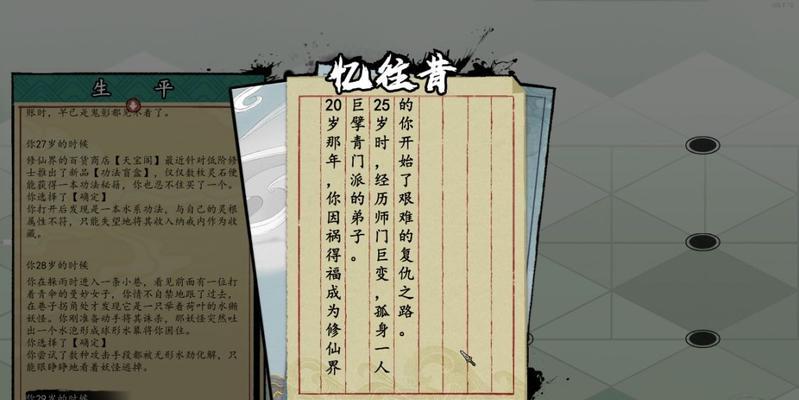 生 平
账时，早已是鬼影都见不着了。
你27岁的时候
修仙界的百货商店【天宝阁】最近针对低阶修
士推出了新品【功法盲盒】，仅仅数枚灵石便
能获得一本功法秘籍，你也忍不住买了一个。
你选择了【确定】
你打开后发现是一本水系功法，与自己的灵根
属性不符，只能失望地将其收入纳戒内作为收
藏。
你28岁的时候
你在躲雨时进入一条小巷，看见前面有一位打
着青伞的曼妙女子，你情不自禁地跟了过去，
在巷子拐角处才发现它是一只举着荷叶的水獭
妖怪。你刚准备动手将其诛杀，那妖怪突然吐
出一个水泡形成球形水幕将你困住。
你选择了【确定】
你尝试了数种攻击手段都被无形水劲化解，只
能眼睁睁地看着妖怪逃掉。
你29岁的时候
忆往昔
20岁那年，你因祸得福成为修仙界
巨擘青门派的弟子。
25岁时，经历师门巨变，孤身一人
的你开始了艰难的复仇之路。